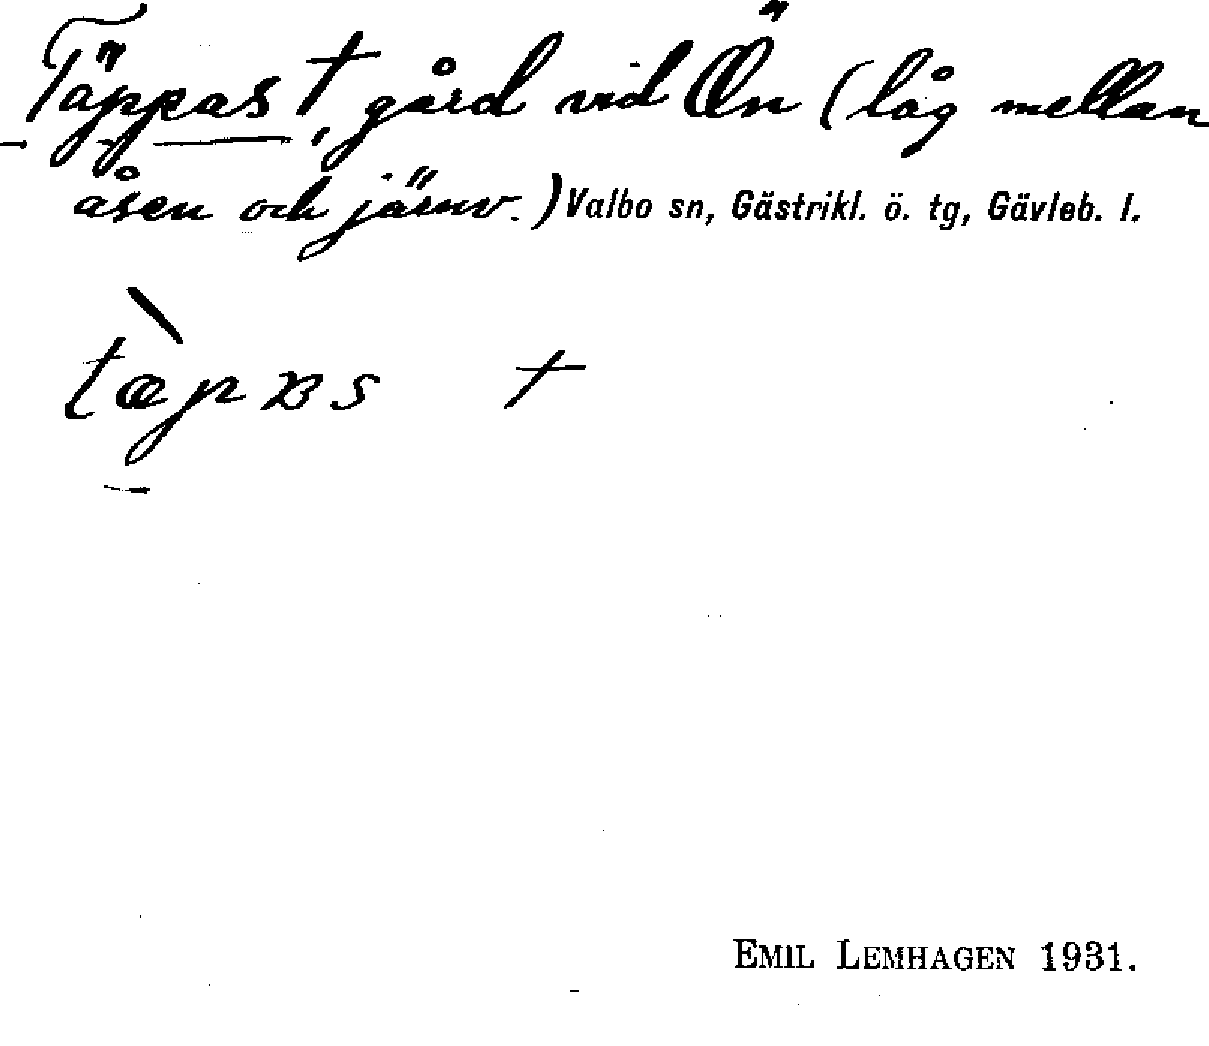 Täppas †, gård vid Ön (låg mellan
åsen och järnv.) Valbo sn, Gästrikl. ö. tg, Gävleb. l.
tæ̀pɐs †
EMIL LEMHAGEN 1931.